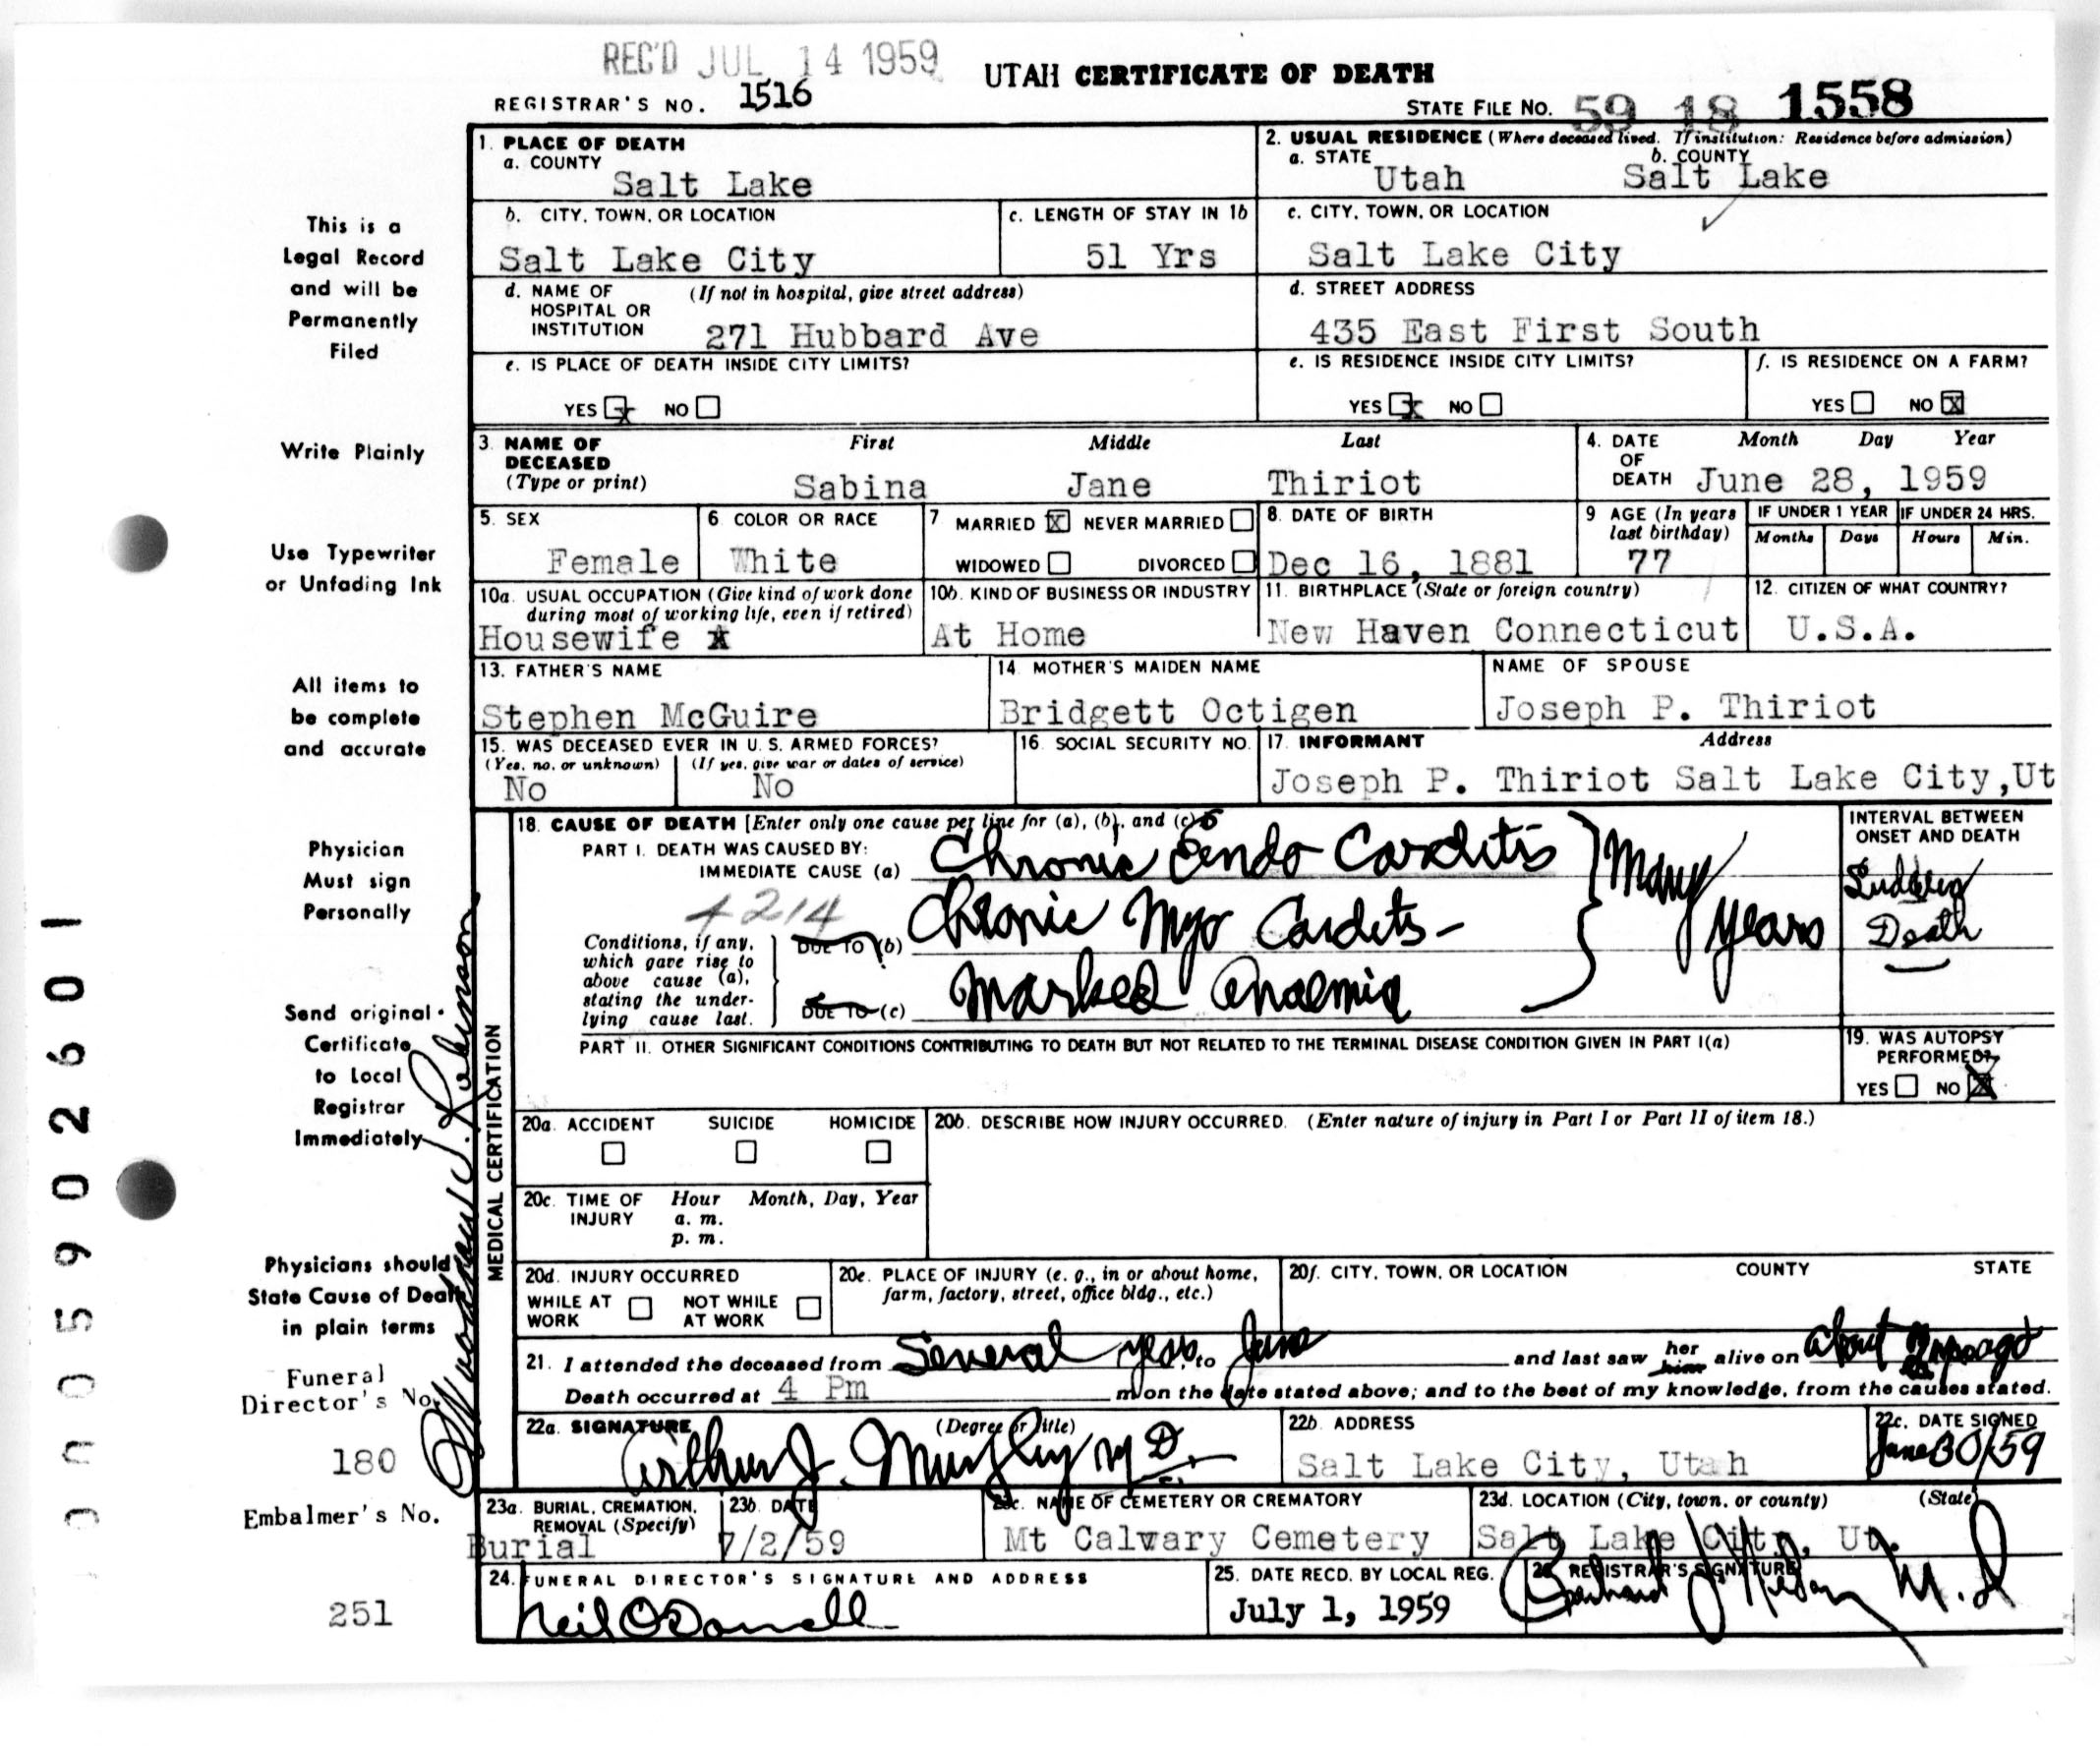 REC'D JUL 14 1959
UTAH CERTIFICATE OF DEATH
REGISTRAR'S NO. 1516
STATE FILE NO. 59 18 1558
This is a
Legal Record
and will be
Permanently
Filed
Write Plainly
Use Typewriter
or Unfading Ink
All items to
be complete
and accurate
Physician
Must sign
Personally
Send original
Certificate
to Local
Registrar
Immediately
Physicians should
State Cause of Death
in plain terms
Funeral
Director's No.
180
Embalmer's No.
251
1. PLACE OF DEATH
a. COUNTY
Salt Lake
2. USUAL RESIDENCE (Where deceased lived. If institution: Residence before admission)
a. STATE
Utah
b. COUNTY
Salt Lake
b. CITY, TOWN, OR LOCATION
Salt Lake City
c. LENGTH OF STAY IN 1b
51 Yrs
c. CITY, TOWN, OR LOCATION
Salt Lake City
d. NAME OF (If not in hospital, give street address)
HOSPITAL OR
INSTITUTION 271 Hubbard Ave
d. STREET ADDRESS
435 East First South
e. IS PLACE OF DEATH INSIDE CITY LIMITS?
YES x NO
e. IS RESIDENCE INSIDE CITY LIMITS?
YES x NO
f. IS RESIDENCE ON A FARM?
YES NO X
3. NAME OF First Middle Last
DECEASED
(Type or print) Sabina Jane Thiriot
4. DATE Month Day Year
OF
DEATH June 28, 1959
5. SEX
Female
6. COLOR OR RACE
White
7 MARRIED X NEVER MARRIED
WIDOWED DIVORCED
8. DATE OF BIRTH
Dec 16, 1881
9 AGE (In years
last birthday)
77
IF UNDER 1 YEAR
Months Days
IF UNDER 24 HRS.
Hours Min.
10a. USUAL OCCUPATION (Give kind of work done
during most of working life, even if retired)
Housewife
10b. KIND OF BUSINESS OR INDUSTRY
At Home
11. BIRTHPLACE (State or foreign country)
New Haven Connecticut
12. CITIZEN OF WHAT COUNTRY?
U.S.A.
13. FATHER'S NAME
Stephen McGuire
14. MOTHER'S MAIDEN NAME
Bridgett Octigen
NAME OF SPOUSE
Joseph P. Thiriot
15. WAS DECEASED EVER IN U. S. ARMED FORCES?
(Yes, no, or unknown) (If yes, give war or dates of service)
No No
16. SOCIAL SECURITY NO.
17. INFORMANT Address
Joseph P. Thiriot Salt Lake City,Ut
MEDICAL CERTIFICATION
18. CAUSE OF DEATH [Enter only one cause per line for (a), (b), and (c)]
PART I. DEATH WAS CAUSED BY:
IMMEDIATE CAUSE (a) Chronic Endo Carditis
4214
Conditions, if any,
which gave rise to
above cause (a),
stating the under-
lying cause last.
DUE TO (b) Chronic Myo Cardits -
DUE TO (c) Marked Anaemia
Many years
INTERVAL BETWEEN
ONSET AND DEATH
Sudden
Death
PART II. OTHER SIGNIFICANT CONDITIONS CONTRIBUTING TO DEATH BUT NOT RELATED TO THE TERMINAL DISEASE CONDITION GIVEN IN PART I(a)
19. WAS AUTOPSY
PERFORMED?
YES NO X
20a. ACCIDENT SUICIDE HOMICIDE
20b. DESCRIBE HOW INJURY OCCURRED. (Enter nature of injury in Part I or Part II of item 18.)
20c. TIME OF Hour Month, Day, Year
INJURY a. m.
p. m.
20d. INJURY OCCURRED
WHILE AT NOT WHILE
WORK AT WORK
20e. PLACE OF INJURY (e. g., in or about home,
farm, factory, street, office bldg., etc.)
20f. CITY, TOWN, OR LOCATION COUNTY STATE
21. I attended the deceased from Several years, to June and last saw her him alive on about ago
Death occurred at 4 Pm m on the date stated above; and to the best of my knowledge, from the causes stated.
22a. SIGNATURE (Degree or title)
Arthur J. Murphy M D.
22b. ADDRESS
Salt Lake City, Utah
22c. DATE SIGNED
June 30/59
23a. BURIAL, CREMATION,
REMOVAL (Specify)
Burial
23b. DATE
7/2/59
23c. NAME OF CEMETERY OR CREMATORY
Mt Calvary Cemetery
23d. LOCATION (City, town, or county) (State)
Salt Lake City, Ut.
24. FUNERAL DIRECTOR'S SIGNATURE AND ADDRESS
Neil O'Donnell
25. DATE RECD. BY LOCAL REG.
July 1, 1959
26. REGISTRAR'S SIGNATURE
M.D
J. Robinson
005902601